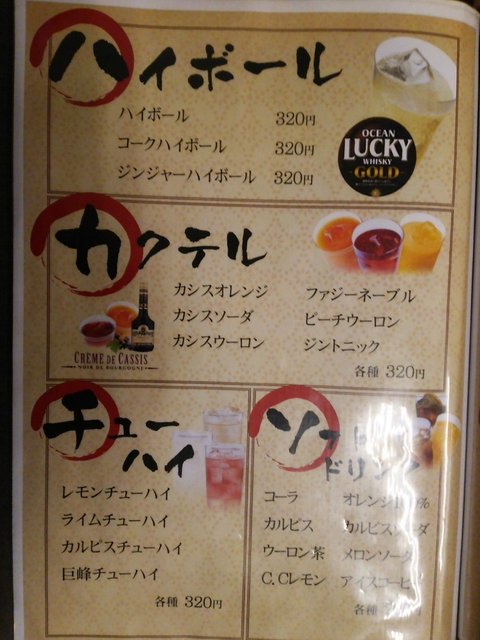 ハイボール
ハイボール 320円
コークハイボール 320円
ジンジャーハイボール 320円
OCEAN
LUCKY
WHISKY
GOLD
カクテル
カシスオレンジ ファジーネーブル
カシスソーダ ピーチウーロン
カシスウーロン ジントニック
各種 320円
CRÈME DE CASSIS
NOIR DE BOURGOGNE
チューハイ
レモンチューハイ
ライムチューハイ
カルピスチューハイ
巨峰チューハイ
各種 320円
ドリンク
コーラ オレンジ
カルピス カルピスソーダ
ウーロン茶 メロンソーダ
C.Cレモン アイスコーヒー
各種